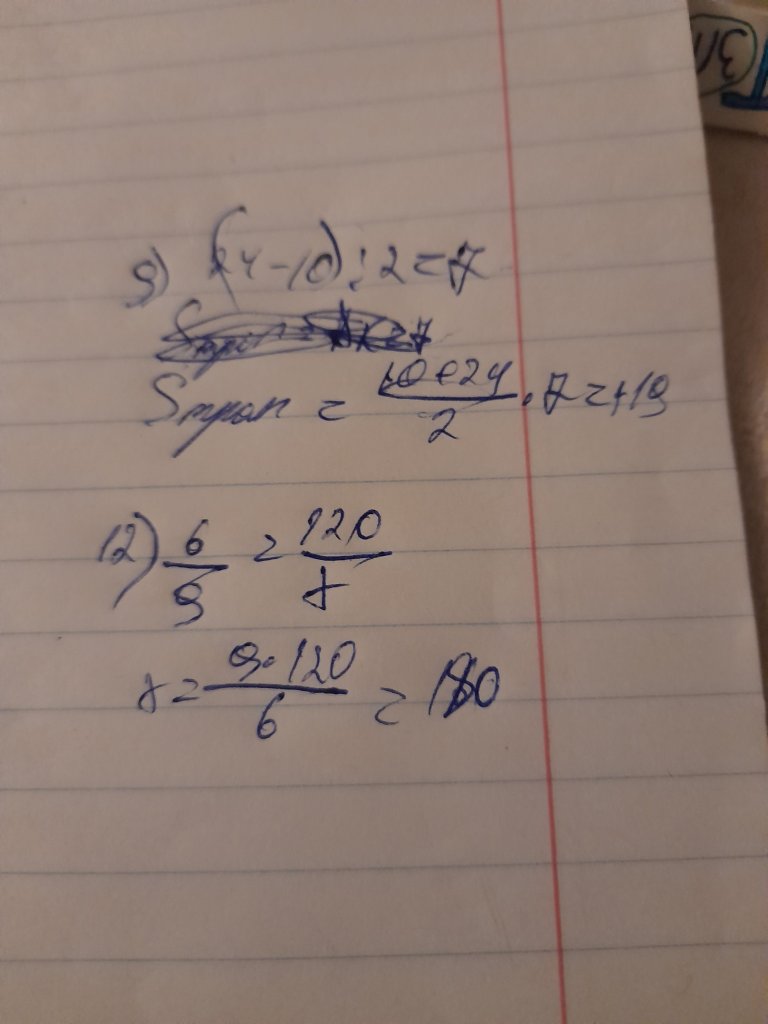 9) (24-10):2=7
Sтрап = \frac{10+24}{2} · 7 = 119
12) \frac{6}{9} = \frac{120}{x}
x = \frac{9·120}{6} = 180